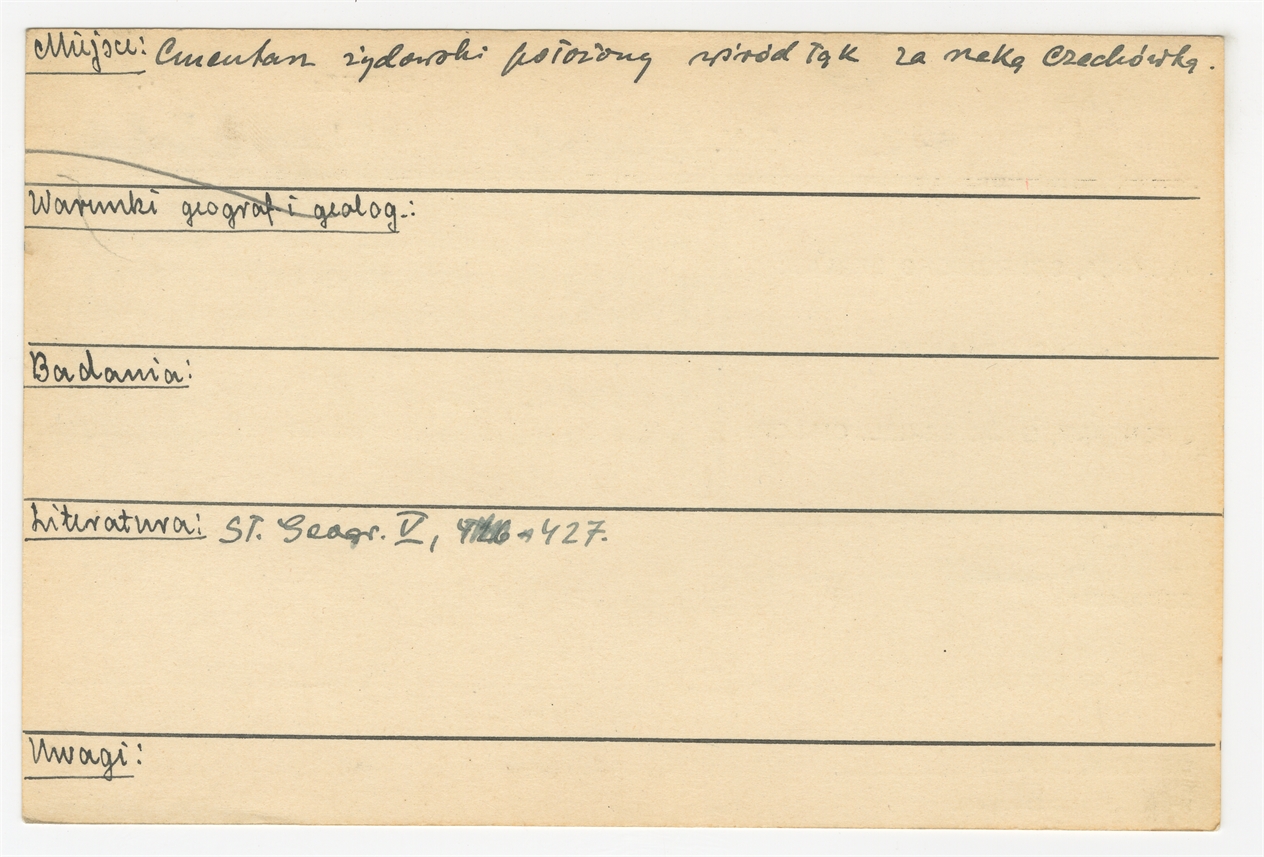 Miejsce: Cmentarz żydowski położony wśród łąk za rzeką Czechówką.
Warunki geograf i geolog.:
Badania:
Literatura: Sł. Geogr. V, 427.
Uwagi: